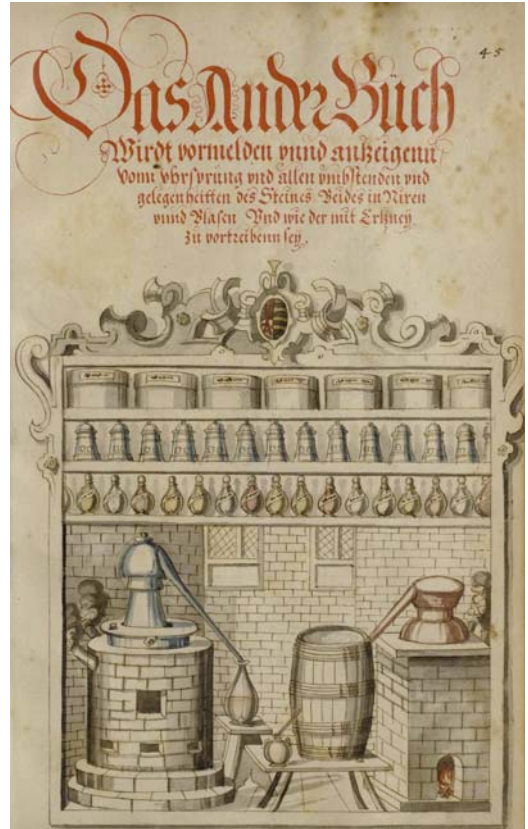 45
Das Ander Büch
Wirdt vormelden vnnd anzeigenn
Vonn vhrsprung vnd allen vmbstenden vnd
gelegenheitten des Steines Beides in Niren
vnnd Blasen Vnd wie der mit Ertzney
Zu vortreibenn sey.